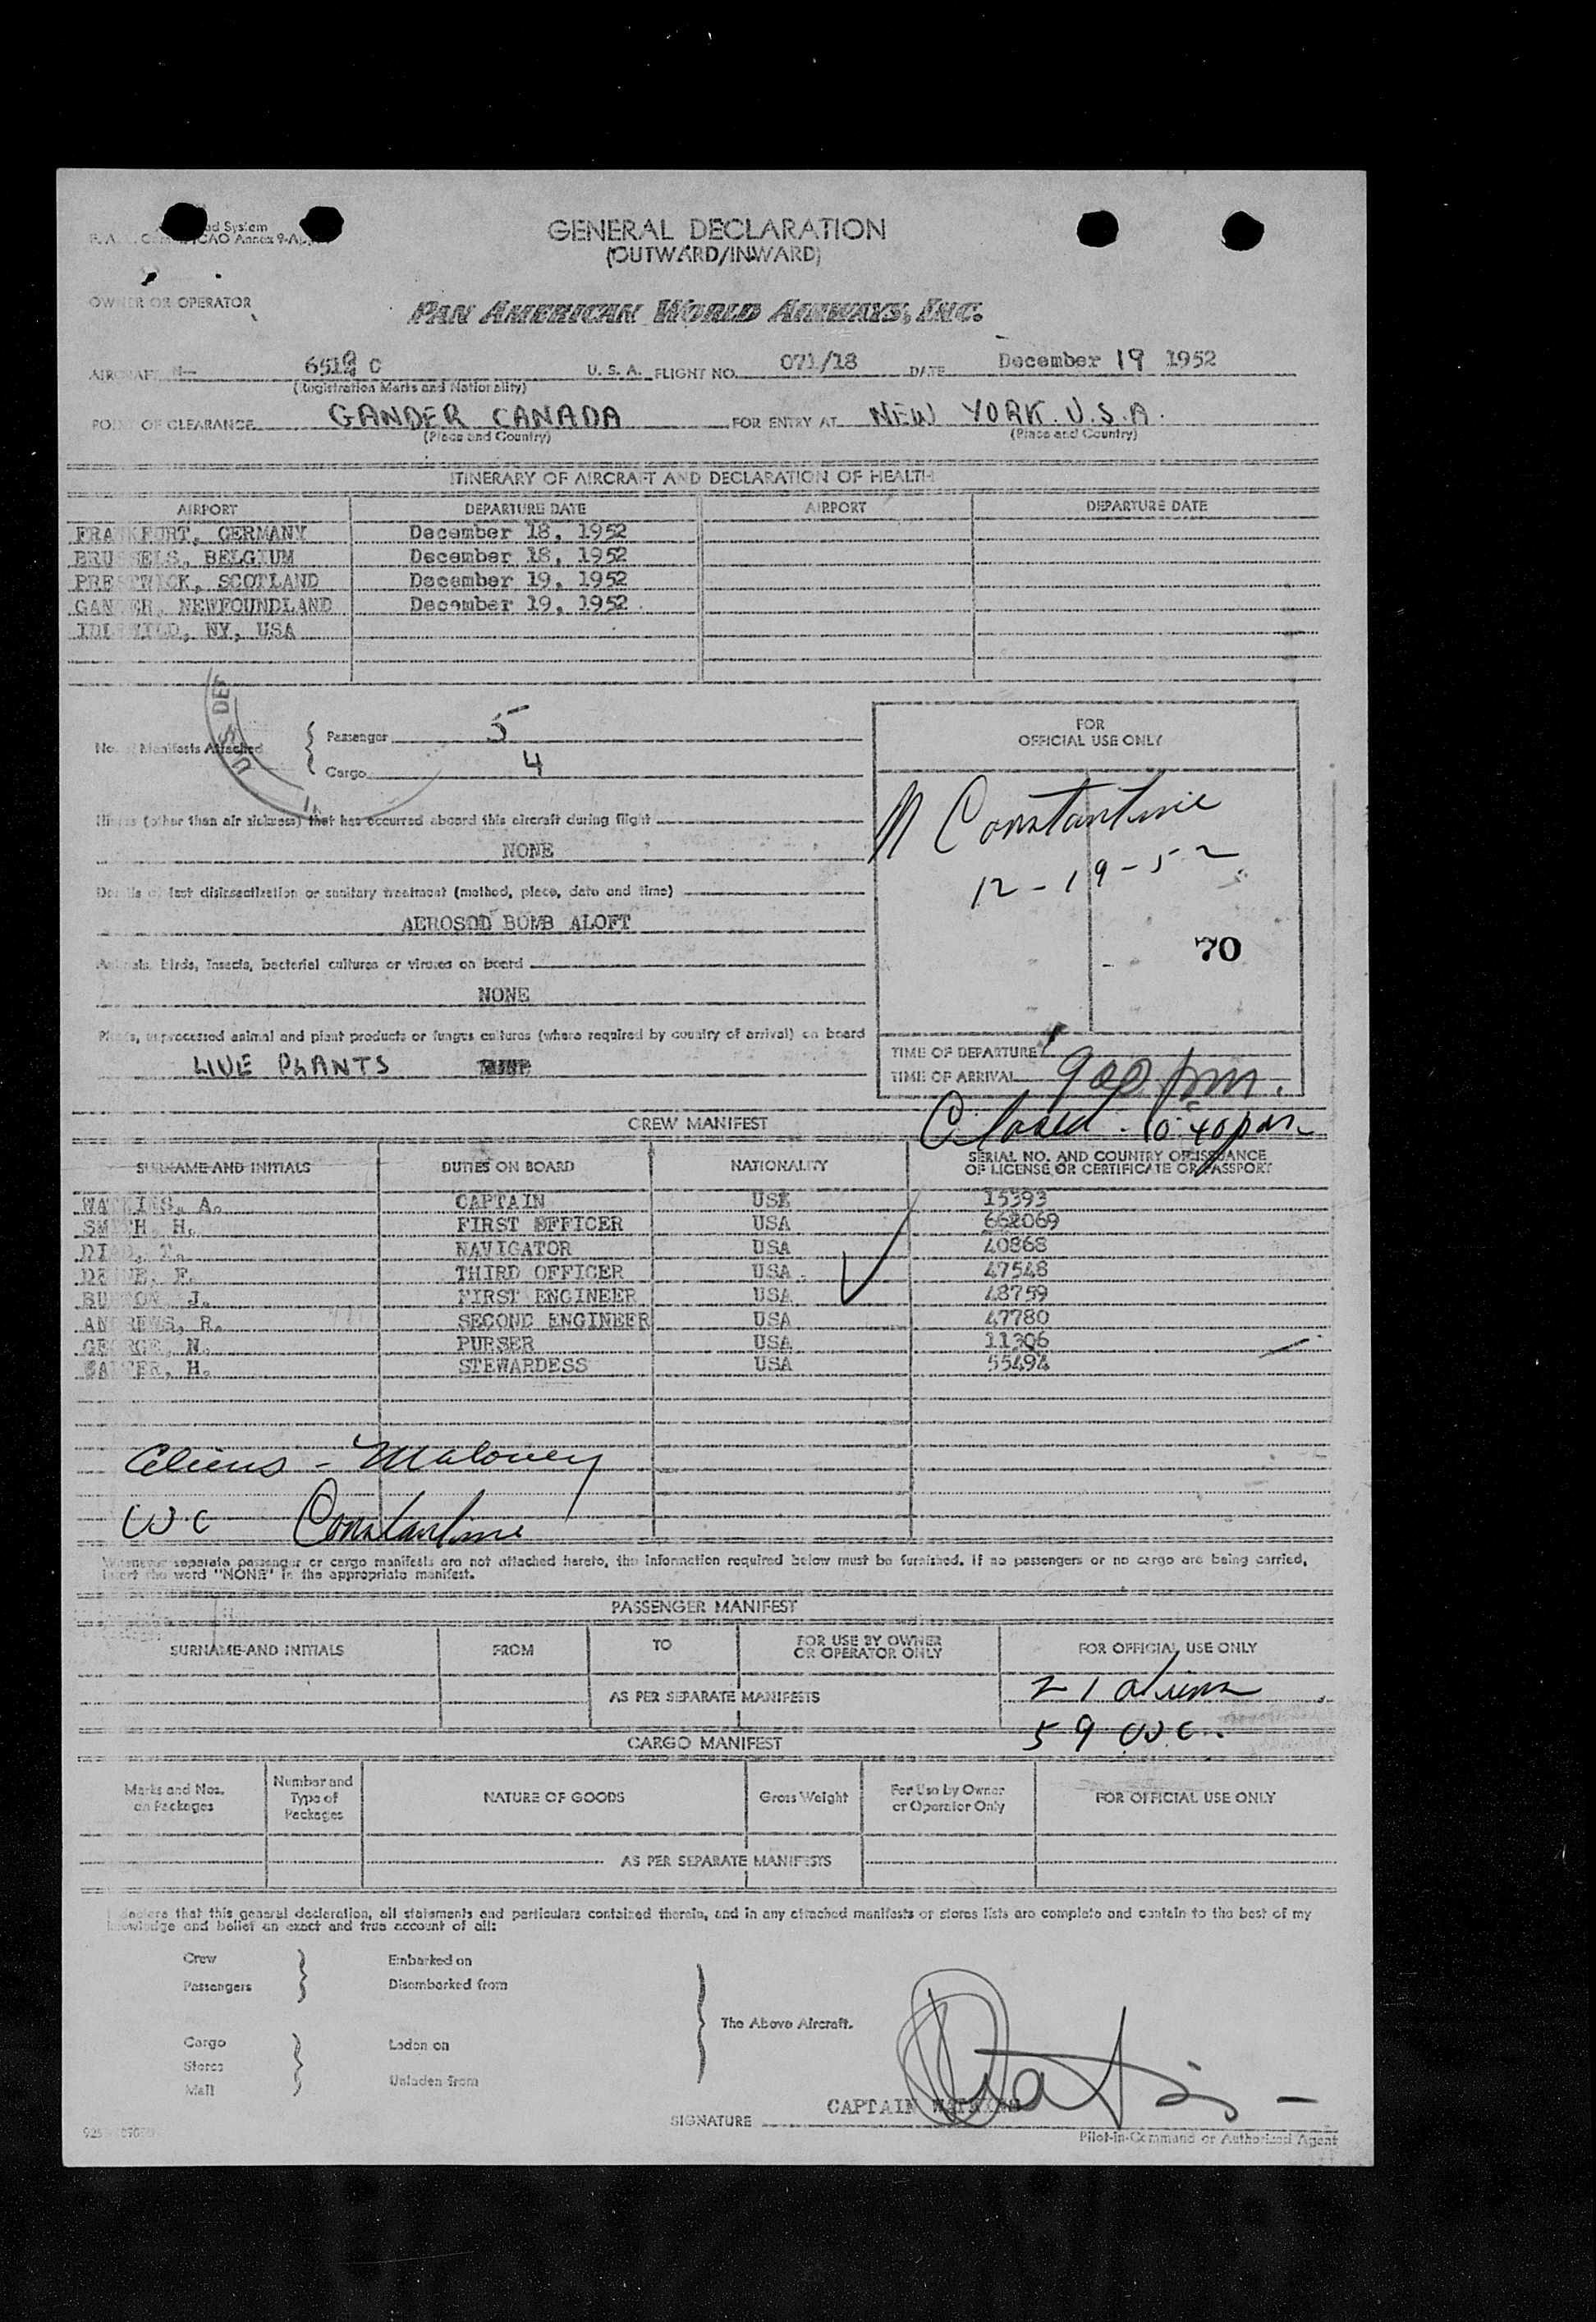 GENERAL DECLARATION
(OUTWARD/INWARD)
OWNER OR OPERATOR
PAN AMERICAN WORLD AIRWAYS, INC.
AIRCRAFT N— C U. S. A. FLIGHT NO. 071/18 DATE December 19 1952
(Registration Marks and Nationality)
POINT OF CLEARANCE GANDER CANADA FOR ENTRY AT NEW YORK. U.S.A.
(Place and Country) (Place and Country)
ITINERARY OF AIRCRAFT AND DECLARATION OF HEALTH
AIRPORT DEPARTURE DATE AIRPORT DEPARTURE DATE
FRANKFURT, GERMANY December 18, 1952
BRUSSELS, BELGIUM December 18, 1952
PRESTWICK, SCOTLAND December 19, 1952
GANDER, NEWFOUNDLAND December 19, 1952
IDLEWILD, NY, USA
No. of Manifests Attached { Passenger 5
Cargo 4
FOR
OFFICIAL USE ONLY
Constantine
12-19-52
70
TIME OF DEPARTURE
TIME OF ARRIVAL 900 pm.
Closed - 10:40 pm
Illness (other than air sickness) that has occurred aboard this aircraft during flight
NONE
Details of last disinsectization or sanitary treatment (method, place, date and time)
AEROSOD BOMB ALOFT
Animals, birds, insects, bacterial cultures or viruses on board
NONE
Plants, unprocessed animal and plant products or fungus cultures (where required by country of arrival) on board
LIVE PLANTS
CREW MANIFEST
SURNAME AND INITIALS DUTIES ON BOARD NATIONALITY SERIAL NO. AND COUNTRY OF ISSUANCE
OF LICENSE OR CERTIFICATE OR PASSPORT
WATKINS, A. CAPTAIN 15393
SMITH, H. FIRST OFFICER USA 662069
NAVIGATOR USA 40868
THIRD OFFICER USA 47548
J. FIRST ENGINEER USA 48759
ANDREWS, R. SECOND ENGINEER USA 47780
GEORGE, N. PURSER USA 11306
H. STEWARDESS USA 55494
Aliens - Maloney
USC Constantine
Whenever separate passenger or cargo manifests are not attached hereto, the information required below must be furnished. If no passengers or no cargo are being carried,
insert the word "NONE" in the appropriate manifest.
PASSENGER MANIFEST
SURNAME AND INITIALS FROM TO FOR USE BY OWNER
OR OPERATOR ONLY FOR OFFICIAL USE ONLY
AS PER SEPARATE MANIFESTS 21 aliens
59 USC
CARGO MANIFEST
Marks and Nos.
on Packages Number and
Type of
Packages NATURE OF GOODS Gross Weight For Use by Owner
or Operator Only FOR OFFICIAL USE ONLY
AS PER SEPARATE MANIFESTS
I declare that this general declaration, all statements and particulars contained therein, and in any attached manifests or stores lists are complete and contain to the best of my
knowledge and belief an exact and true account of all:
Crew Embarked on
Passengers Disembarked from
The Above Aircraft.
Cargo Laden on
Stores
Mail Unladen from
SIGNATURE CAPTAIN WATKINS
Pilot-in-Command or Authorized Agent